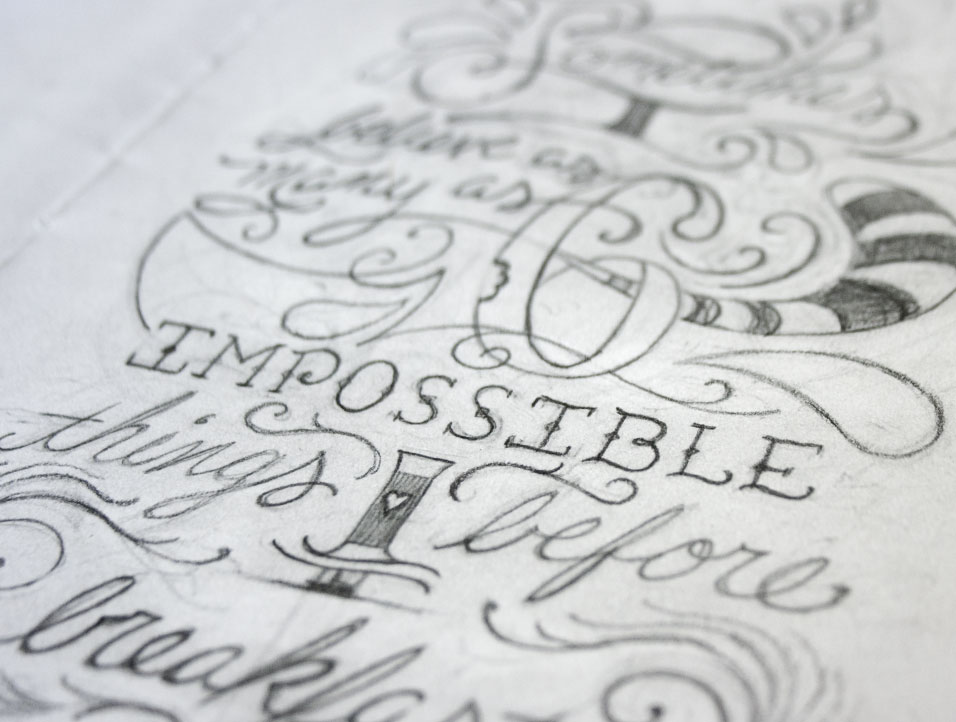 Sometimes
believe as
many as 6
IMPOSSIBLE
things before
breakfas